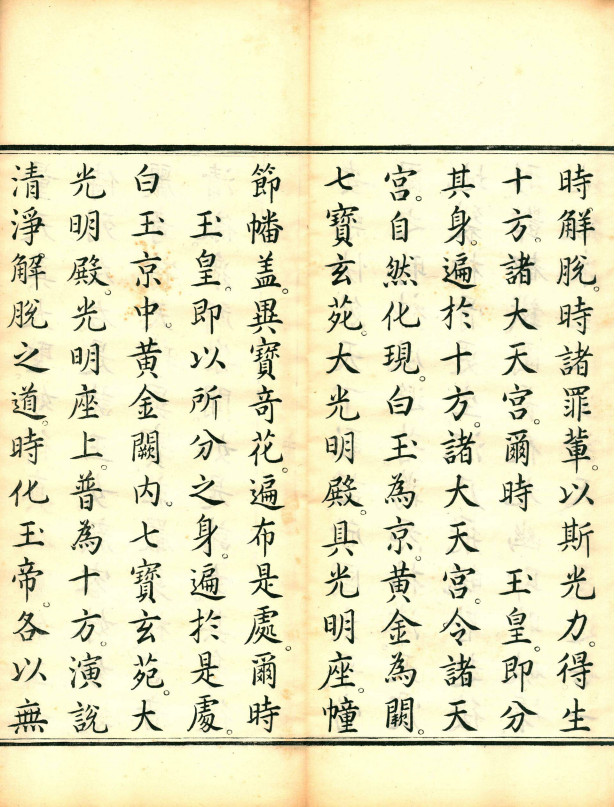 時解脫。時諸罪輩。以斯光力。得生
十方。諸大天宮。爾時　玉皇。即分
其身。遍於十方。諸大天宮。令諸天
宮。自然化現。白玉為京。黃金為闕。
七寶玄苑。大光明殿。具光明座。幢
節幡盖。異寶奇花。遍布是處。爾時
玉皇。即以所分之身。遍扵是處。
白玉京中。黃金闕内。七寶玄苑。大
光明殿。光明座上。普為十方。演說
清淨解脫之道。時化玉帝。各以無